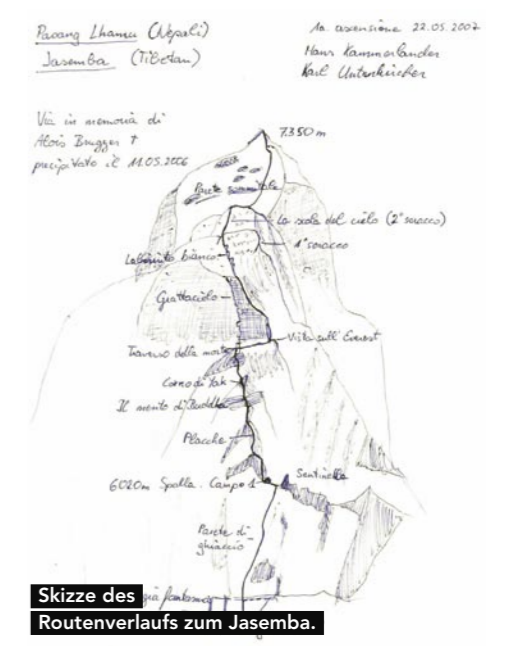 Pasang Lhamu (Nepali)
Jasemba (Tibetan)
1a. ascensione 22.05.2007
Hans Kammerlander
Karl Unterkircher
Via in memoria di
Alois Brugger †
precipitato il 11.05.2006
7.350 m
Parete sommitale
La scala del cielo (2° seracco)
1° seracco
Labirinto bianco
Grattacielo
Vista sull'Everest
Traverso della morte
Corno di Yak
Il mento di Buddha
Placche
6020m Spalla. Campo 1
Sentinella
Parete di
ghiaccio
fantasma
Skizze des
Routenverlaufs zum Jasemba.